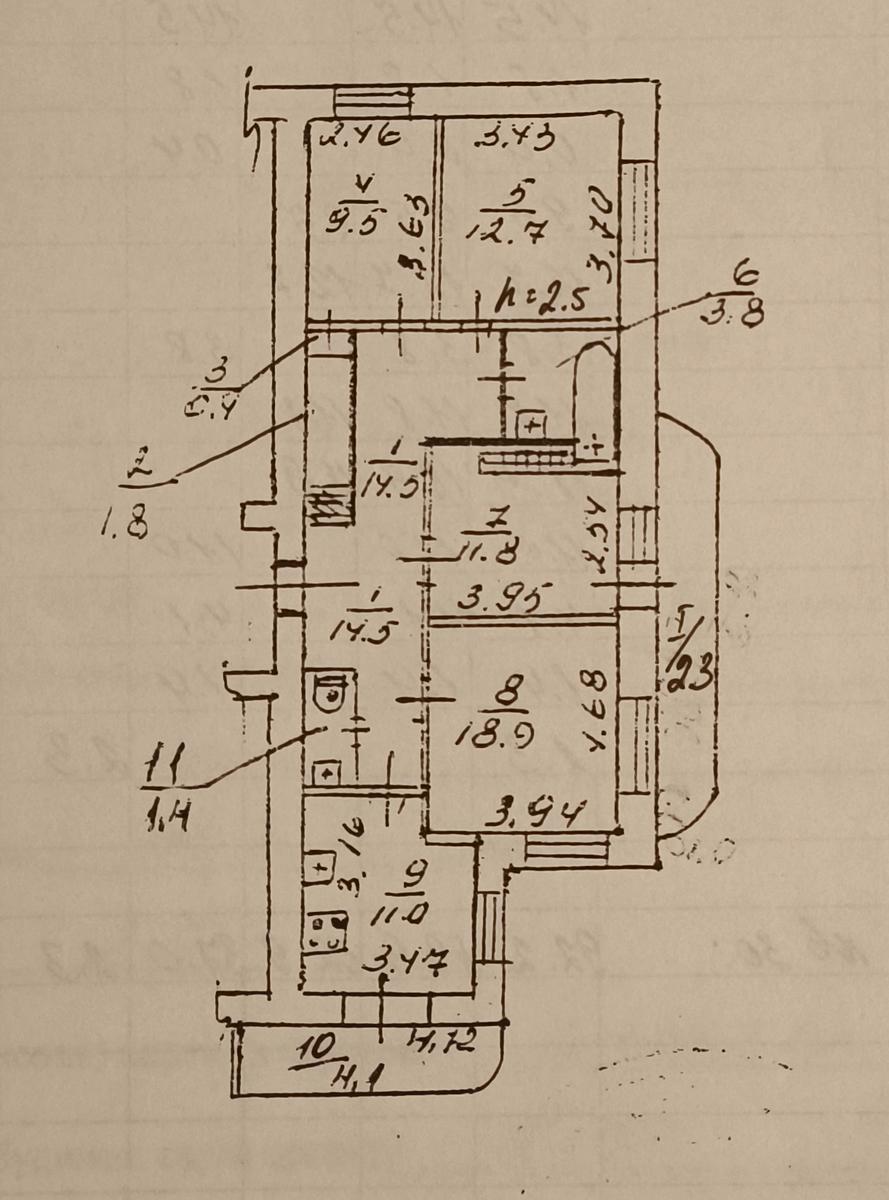 2.46
3.43
4
9.5
3.63
5
12.7
3.70
h=2.5
6
3.8
3
0.4
2
1.8
1
14.5
7
11.8
2.54
3.95
1
14.5
I/23
8
18.9
4.68
11
1.4
3.94
3.16
9
11.0
3.47
10
4,1
4,12